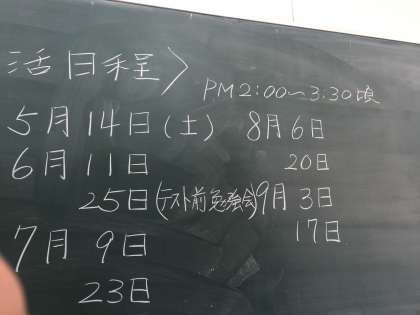 活日程〉
PM2:00～3:30頃
5月14日(土)
6月11日
25日(テスト前勉強会)
7月9日
23日
8月6日
20日
9月3日
17日